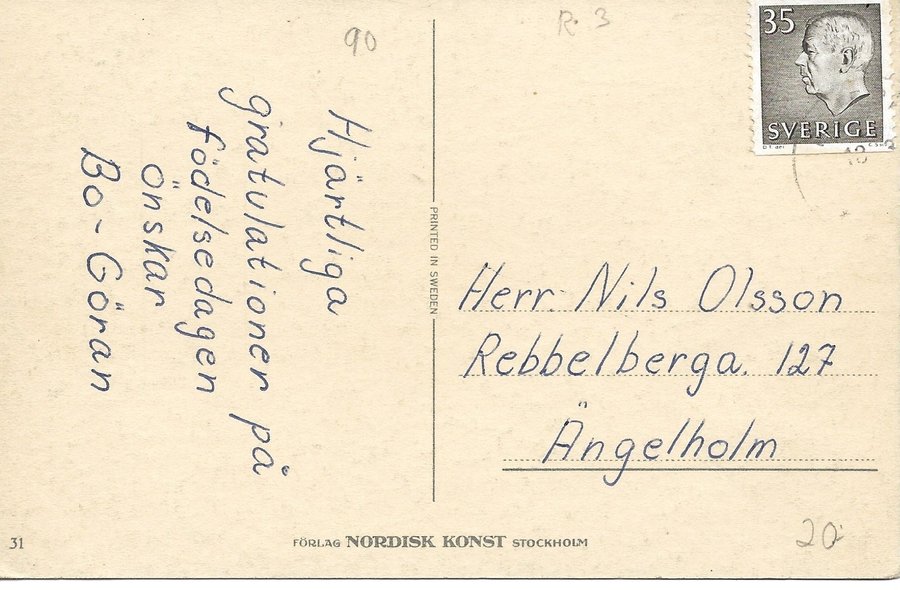 90
R. 3
35
SVERIGE
Hjärtliga
gratulationer på
födelsedagen
önskar
Bo-Göran
PRINTED IN SWEDEN
Herr. Nils Olsson
Rebbelberga. 127
Ängelholm
31
FÖRLAG NORDISK KONST STOCKHOLM
20